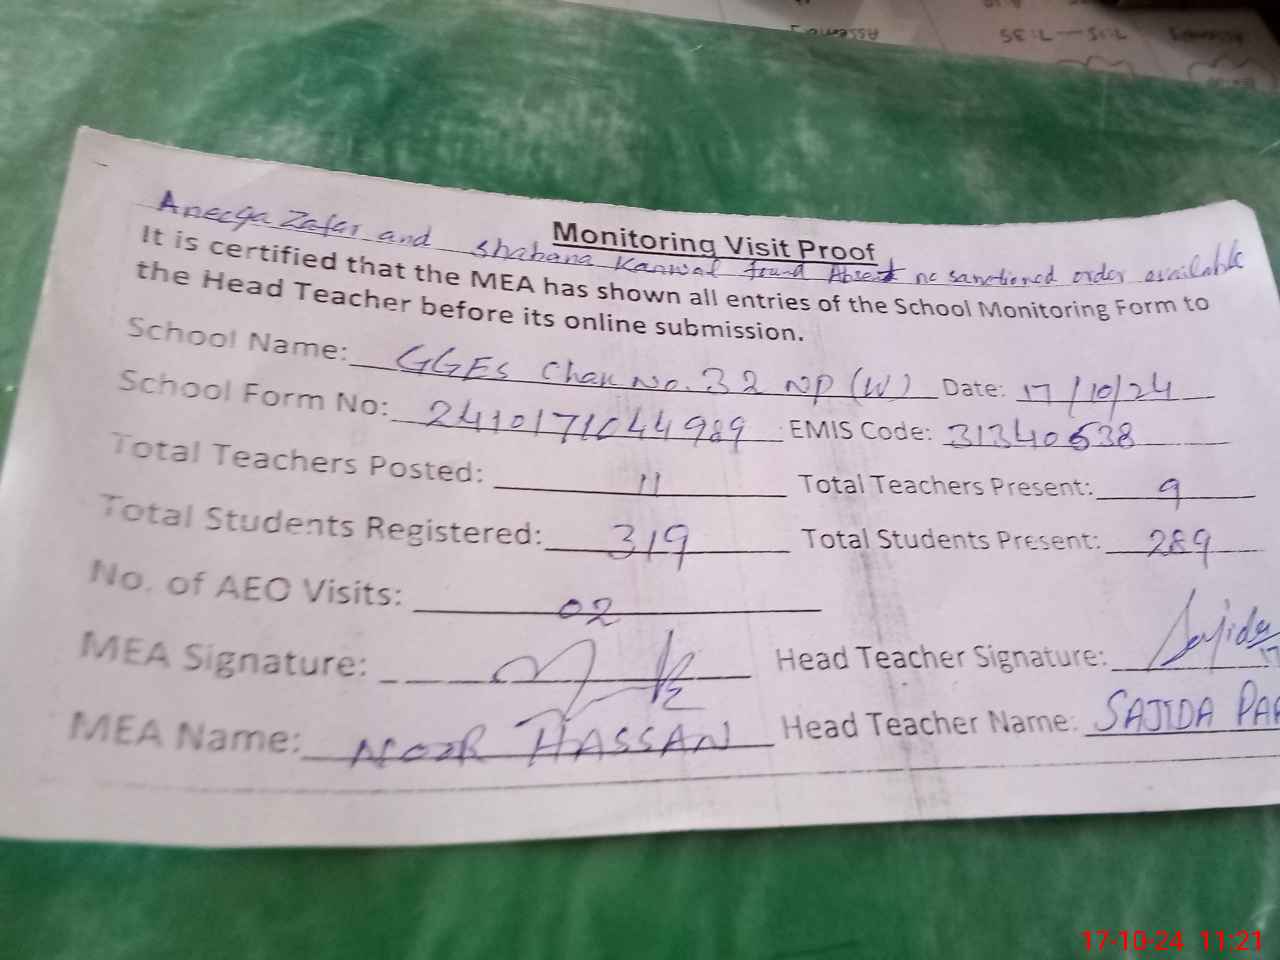 Assembly 7:15 - 7:35 Assembly
Monitoring Visit Proof
Aneeqa Zafar and Shabana Kanwal found Absent no sanctioned order available
It is certified that the MEA has shown all entries of the School Monitoring Form to
the Head Teacher before its online submission.
School Name: GGES Chak No. 32 NP (W) Date: 17/10/24
School Form No: 2410171044989 EMIS Code: 31340538
Total Teachers Posted: 11 Total Teachers Present: 9
Total Students Registered: 319 Total Students Present: 289
No. of AEO Visits: 02
MEA Signature: Head Teacher Signature: Sajida
17
MEA Name: NOOR HASSAN Head Teacher Name: SAJIDA PAR
17-10-24 11:21